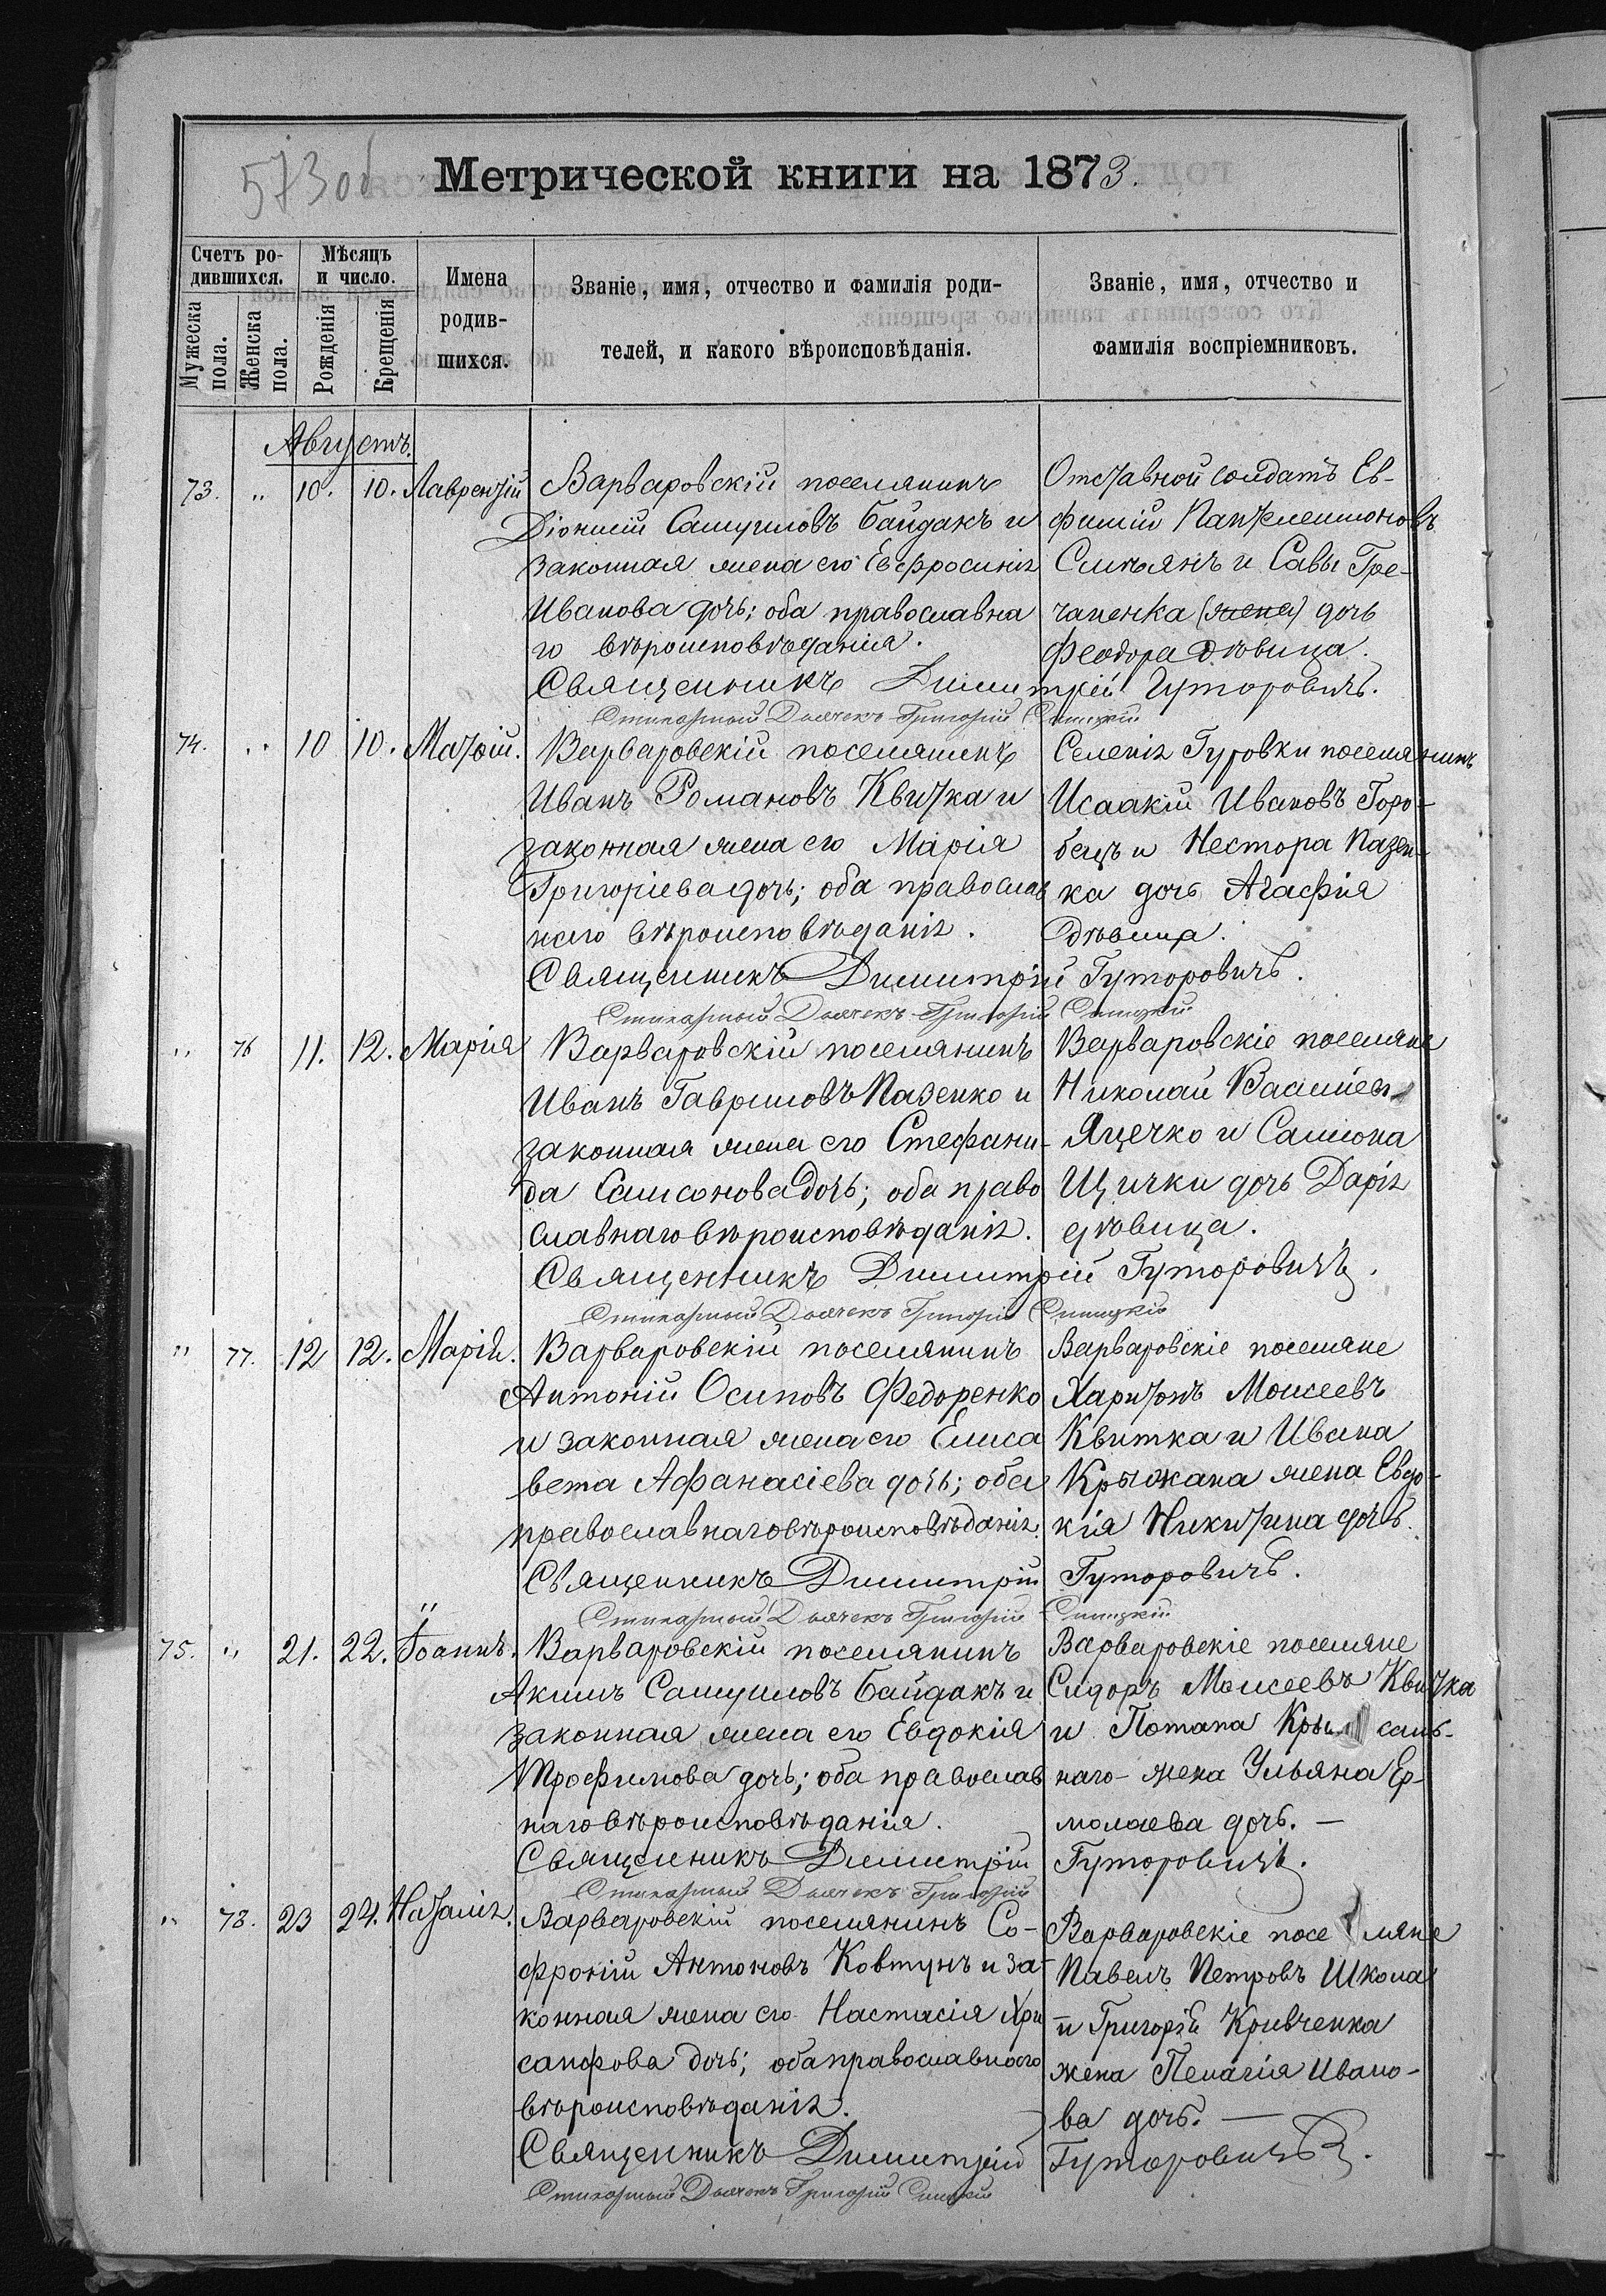 573 об
Метрической книги на 1873.
Счетъ ро-
дившихся.
Мужеска пола.
Женска пола.
Мѣсяцъ
и число.
Рожденія
Крещенія
Имена
родив-
шихся.
Званіе, имя, отчество и фамилія роди-
телей, и какого вѣроисповѣданія.
Званіе, имя, отчество и
фамилія воспріемниковъ.
Августъ.
73. " 10. 10. Лаврентій
Варваровскій поселянинъ
Діонисій Самуиловъ Байдакъ и
законная жена его Евфросинія
Иванова дочь; оба православна
го вѣроисповѣданія.
Отставной солдатъ Ев-
фимій Пантелеимоновъ
и Савы Гре-
чаненка (жена) дочь
Феодора дѣвица.
Священникъ Димитрій Гуторовичъ.
Стихарный Дьячекъ Григорій Синицкій
74. " 10 10. Матѳій.
Варваровскій поселянинъ
Иванъ Романовъ Квитка и
законная жена его Марія
Григоріева дочь; оба православ
наго вѣроисповѣданія.
Селенія Гуровки поселянинъ
Исаакій Ивановъ Горо-
бецъ и Нестора Пазен-
ка дочь Агафія
дѣвица.
Священникъ Димитрій Гуторовичъ.
Стихарный Дьячекъ Григорій Синицкій
" 76 11. 12. Марія
Варваровскій поселянинъ
Иванъ Гавриловъ Пазенко и
законная жена его Стефани-
да Самсонова дочь; оба право
славнаго вѣроисповѣданія.
Варваровскіе поселяне
Николай Васильев
Яцечко и Самсона
Щички дочь Дарія
дѣвица.
Священникъ Димитрій Гуторовичъ.
Стихарный Дьячекъ Григорій Синицкій
" 77. 12 12. Марія.
Варваровскій поселянинъ
Антоній Осиповъ Федоренко
и законная жена его Елиса
вета Афанасіева дочь; оба
православнаго вѣроисповѣданія.
Варваровскіе поселяне
Харитонъ Моисеевъ
Квитка и Ивана
Крыжана жена Евдо-
кія Никитина дочь.
Священникъ Димитрій Гуторовичъ.
Стихарный Дьячекъ Григорій Синицкій
75. " 21. 22. Іоаннъ.
Варваровскій поселянинъ
Акимъ Самуиловъ Байдакъ и
законная жена его Евдокія
Трофимова дочь; оба православ
наго вѣроисповѣданія.
Варваровскіе поселяне
Сидоръ Моисеевъ Квитка
и Потапа
наго жена Ульяна Ер-
молаева дочь. —
Священникъ Димитрій Гуторовичъ.
Стихарный Дьячекъ Григорій
" 78. 23 24. Наталія.
Варваровскій поселянинъ Со-
фроній Антоновъ Ковтунъ и за-
конная жена его Настасія Хри
санфова дочь; оба православнаго
вѣроисповѣданія.
Варваровскіе поселяне
Павелъ Петровъ Школа
и Григорій Кривченка
жена Пелагія Ивано-
ва дочь. —
Священникъ Димитрій Гуторовичъ.
Стихарный Дьячекъ Григорій Синицкій